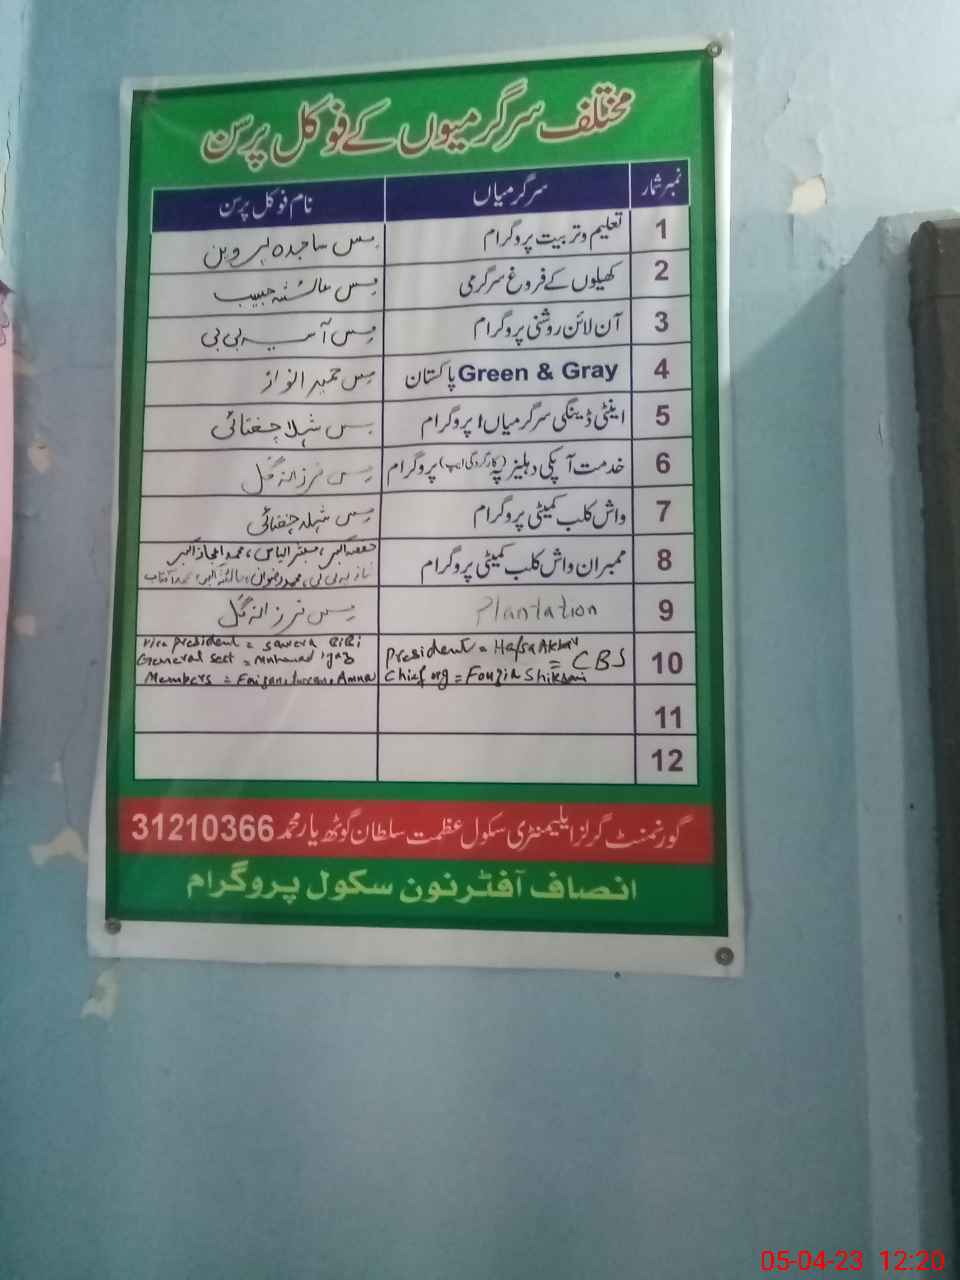 مختلف سرگرمیوں کے فوکل پرسن
نمبر شمار سرگرمیاں نام فوکل پرسن
1 تعلیم و تربیت پروگرام مس ساجدہ پروین
2 کھیلوں کے فروغ سرگرمی مس عائشہ حبیب
3 آن لائن روشنی پروگرام مس آسیہ بی بی
4 Green & Gray پاکستان مس حمیرا نواز
5 اینٹی ڈینگی سرگرمیاں/پروگرام مس شہلا چغتائی
6 خدمت آپکی دہلیز پہ (کارکردگی ایپ) پروگرام مس فرزانہ گل
7 واش کلب کمیٹی پروگرام مس شہلہ چغتائی
8 ممبران واش کلب کمیٹی پروگرام حفصہ اکبر، مبشر الیاس، محمد اعجاز اکبر
نازیہ بی بی، محمد رضوان، عائشہ اکبر، محمد آفتاب
9 Plantation مس فرزانہ گل
10 President = Hafsa Akbar
Chief org = Fouzia = CBS
Vice President = Sawera BiBi
General Sect = Mohamad ijaz
Members = Faizan, , Amna
11
12
گورنمنٹ گرلز ایلیمنٹری سکول عظمت سلطان گوٹھ یار محمد 31210366
انصاف آفٹرنون سکول پروگرام
05-04-23 12:20